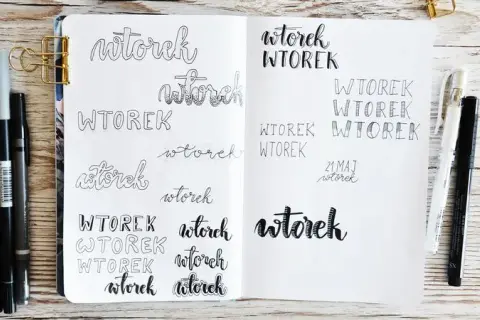 wtorek
wtorek
WTOREK
wtorek
wtorek
wtorek
WTOREK
WTOREK
WTOREK
wtorek
wtorek
wtorek
wtorek
wtorek
WTOREK
WTOREK
WTOREK
WTOREK
WTOREK
WTOREK
21 MAJ
wtorek
wtorek